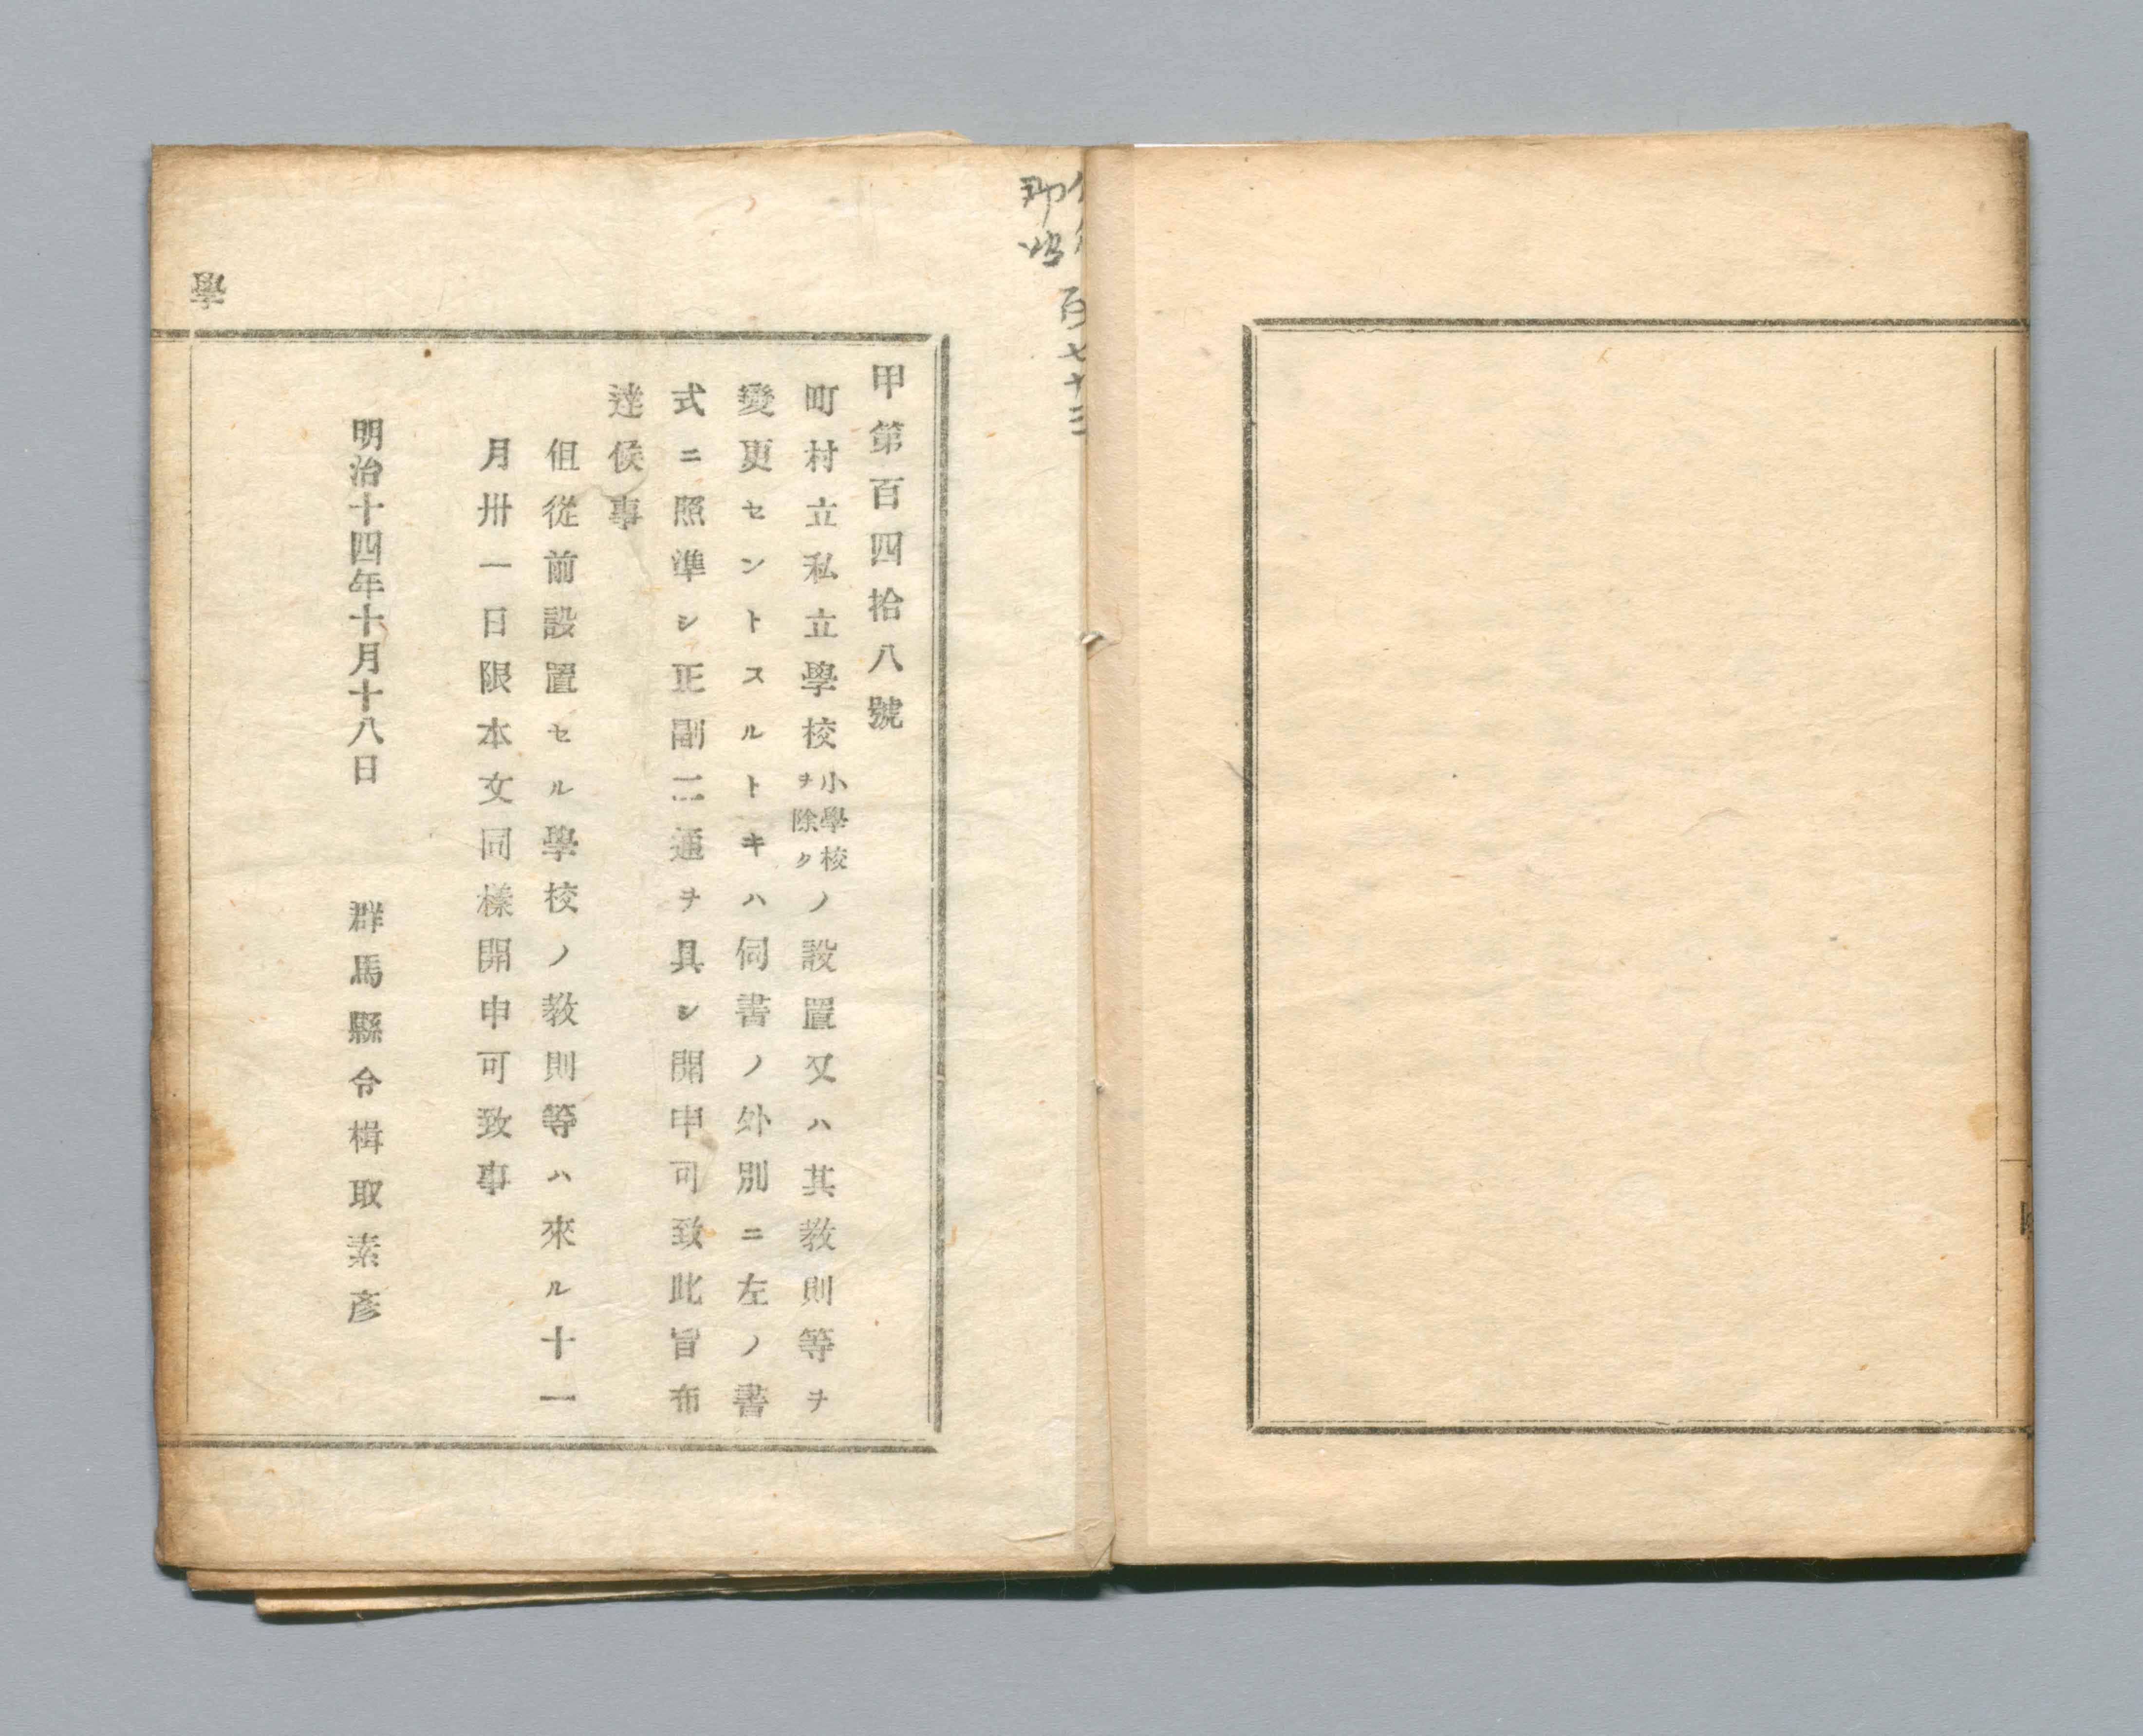 百七十三
甲第百四拾八號
町村立私立學校小學校ヲ除クノ設置又ハ其教則等ヲ
變更セントスルトキハ伺書ノ外別ニ左ノ書
式ニ照準シ正副二通ヲ具シ開申可致此旨布
達候事
但從前設置セル學校ノ教則等ハ來ル十一
月卅一日限本文同樣開申可致事
明治十四年十月十八日 群馬縣令楫取素彥
學